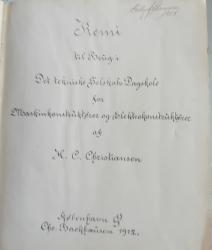 Kemi
til Brug i
Det tekniske Selskabs Dagskole
for
Maskinkonstruktører og Elektrokonstruktører
af
H. C. Christiansen
København
Chr. Backhausen 1912.